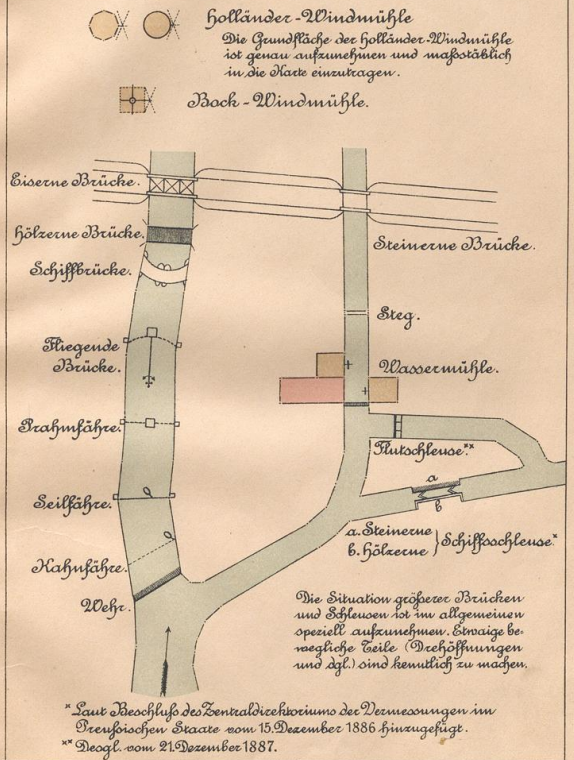 Holländer-Windmühle
Die Grundfläche der Holländer-Windmühle
ist genau aufzunehmen und maßstäblich
in die Karte einzutragen.
Bock-Windmühle.
Eiserne Brücke.
Hölzerne Brücke.
Steinerne Brücke.
Schiffbrücke.
Steg.
Fliegende
Brücke.
Wassermühle.
Prahmfähre.
Flutschleuse.**
a
Seilfähre.
b
a. Steinerne
b. Hölzerne } Schiffsschleuse*
Kahnfähre.
Wehr.
Die Situation größerer Brücken
und Schleusen ist im allgemeinen
speziell aufzunehmen. Etwaige be-
wegliche Teile (Drehöffnungen
und dgl.) sind kenntlich zu machen.
* Laut Beschluß des Zentraldirektoriums der Vermessungen im
Preußischen Staate vom 15. Dezember 1886 hinzugefügt.
** Desgl. vom 21. Dezember 1887.